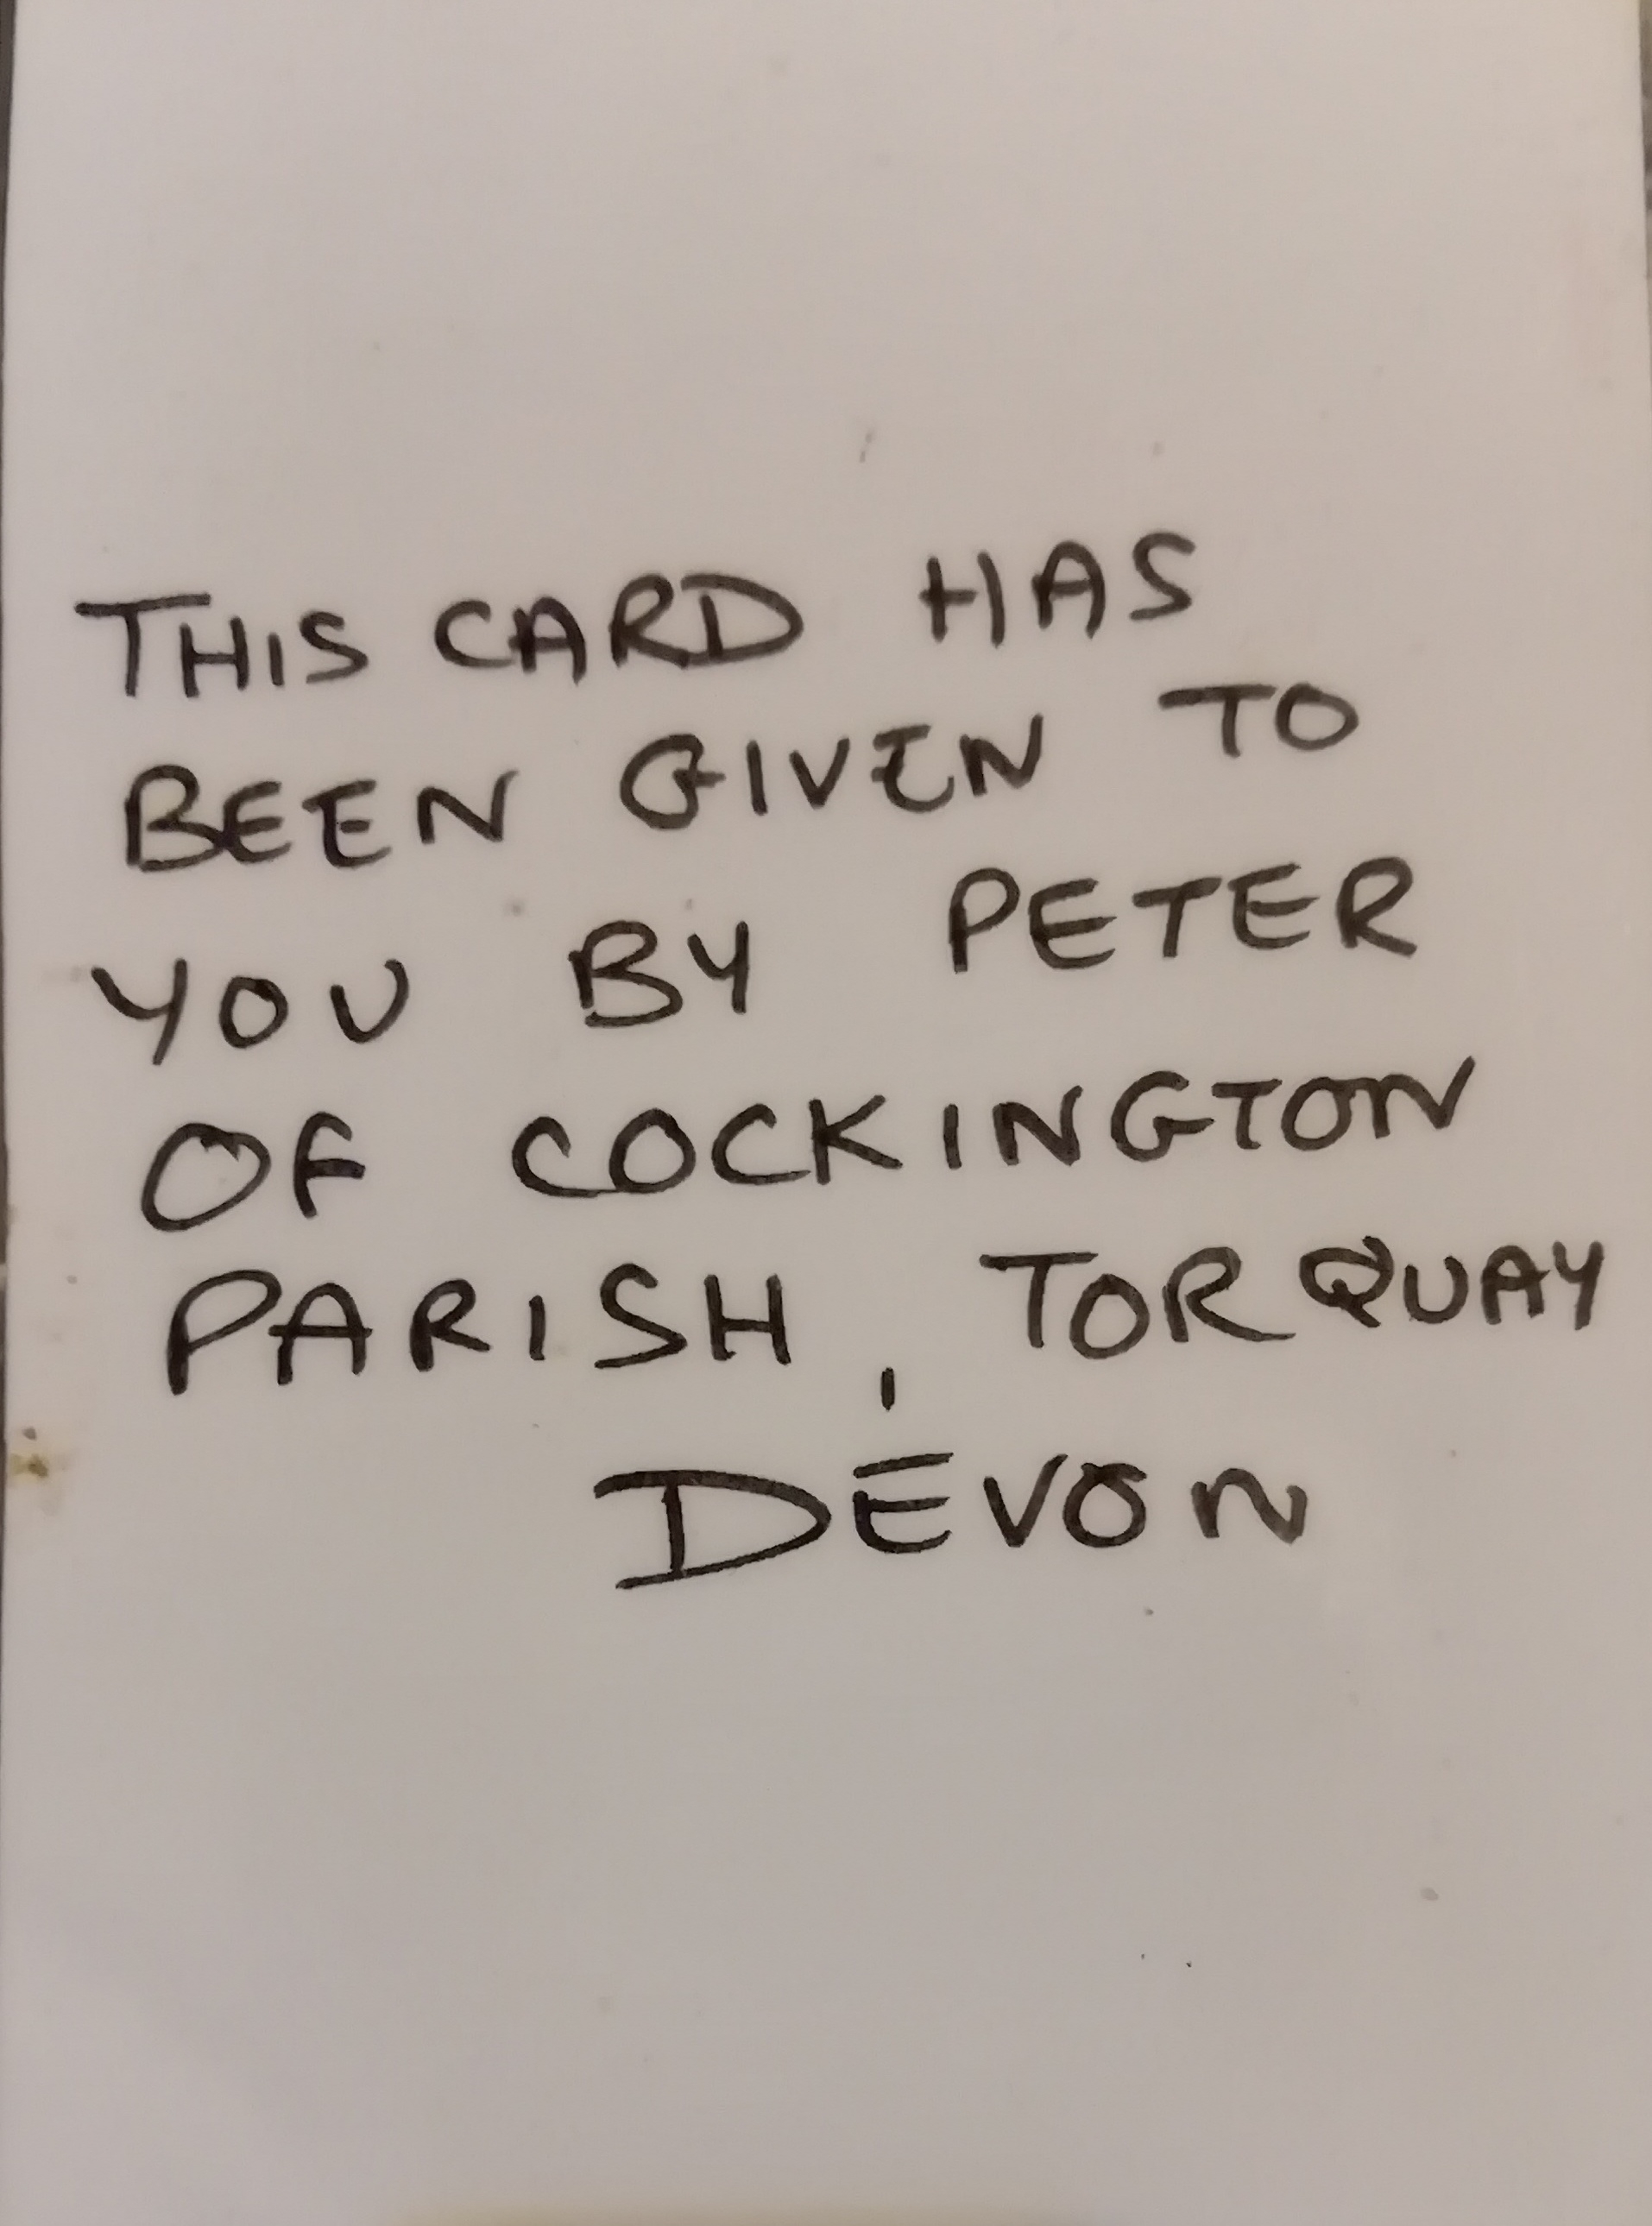 THIS CARD HAS
BEEN GIVEN TO
YOU BY PETER
OF COCKINGTON
PARISH, TORQUAY
DEVON